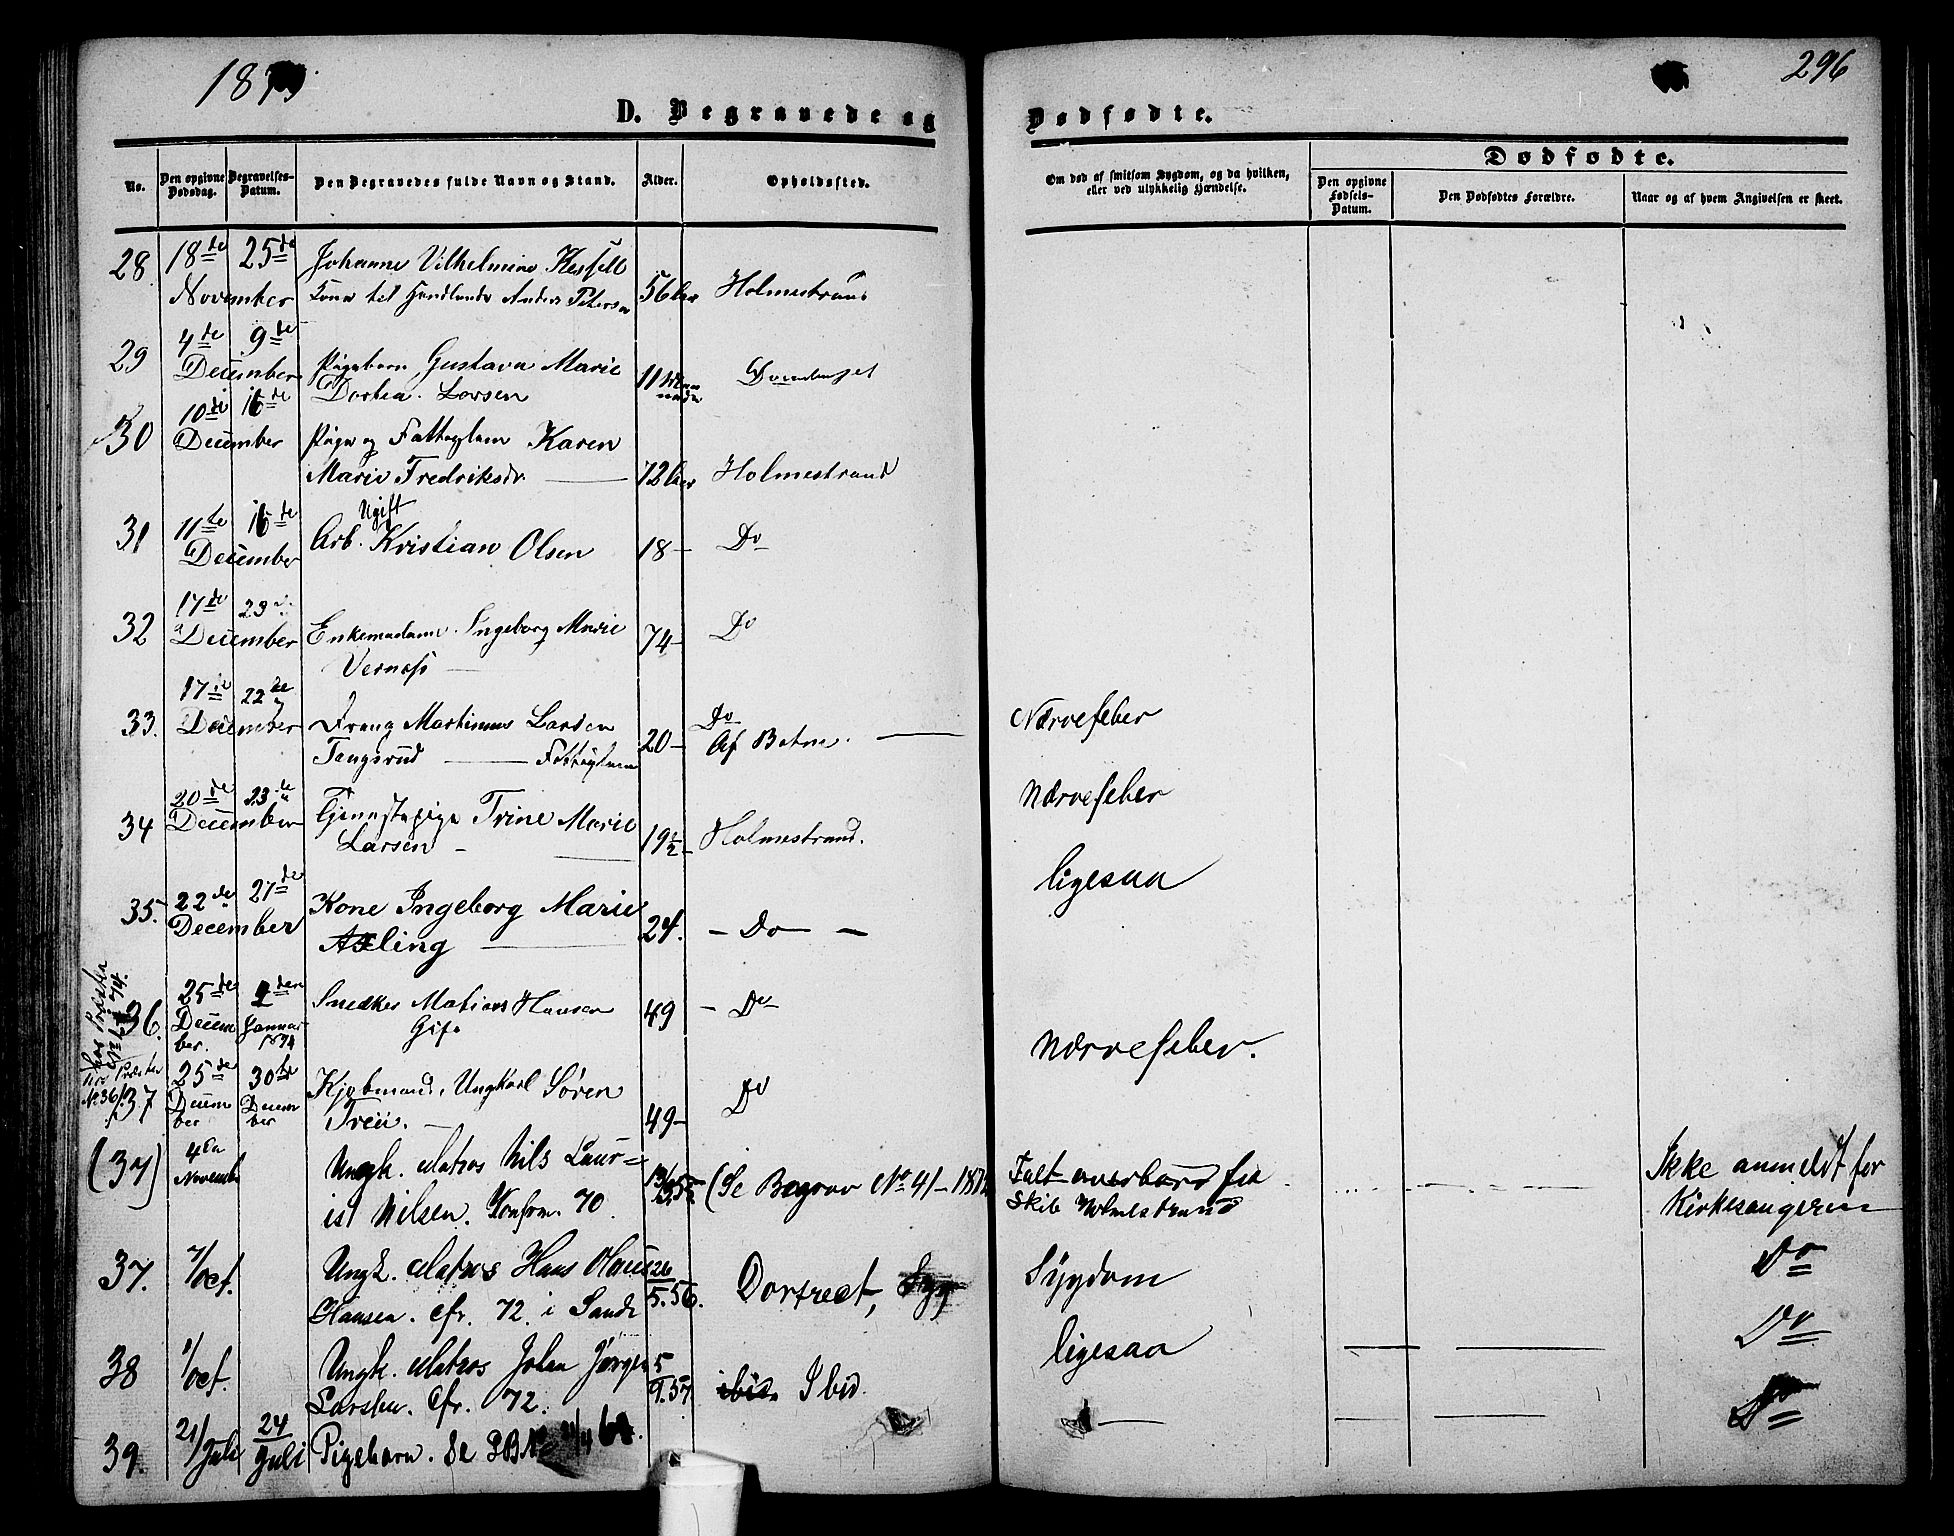 1873
296
D. Begravede og
Dødfødte.
Dødfødte.
No.
Den opgivne Dødsdag.
Begravelses-Datum.
Den Begravedes fulde Navn og Stand.
Alder.
Opholdssted.
Om død af smitsom Sygdom, og da hvilken, eller ved ulykkelig Hændelse.
Den opgivne Fødsels-Datum.
Den Dødfødtes Forældre.
Naar og af hvem Angivelsen er skeet.
28 18de 25de Johanne Vilhelmine
November Kone til Anders Peters 56 Aar Holmestrand
29 4de 9de
December Pigebarn Gustava Marie
Dorthea Larsen 11
30 10de 16de
December Pige og Fattiglem Karen
Marie Fredriksdr 72 Aar Holmestrand
31 11te 16de Ugift
December Arb. Kristian Olsen 18 - Do
32 17de 23de
December Enkemadame Ingeborg Marie 74 - Do
33. 17de 22de
December Martinus Larsen Do Nærvefeber
Tengsrud Fattiglem 20 - Af Botne.
34 20de 23de
December Tjenestepige Trine Marie Nærvefeber
Larsen - 19½ - Holmestrand.
35. 22de 27de Kone Ingeborg Marie ligesaa
December Axling 24. - Do -
36. 25de 2den Snedker Matias Hansen
December. Januar 1874 Gift 49 - Do Nærvefeber.
37 25de 30te Kjøbmand, Ungkarl Søren
December December Treii. 49 - Do
(37) 4de November Ungk. Matros Nils Laur=
ist Nilsen. Konfrm. 70 (Se Begrav No 41 - Falt overbord fra
Skib Holmestrand Ikke anmeldt for
Kirkesangeren
37. 7/oct. Ungk. Matros Hans Olaus 26/5.56. Dortrect, Sygdom Do
Hansen. cfr. 72. i Sande
38 1/oct. Ungk. Matros Johan Jørgen 5/9.57 Ibid. ligesaa Do
Larsen. Cfr. 72.
39. 21/Juli 24 Juli Pigebarn. Se Do